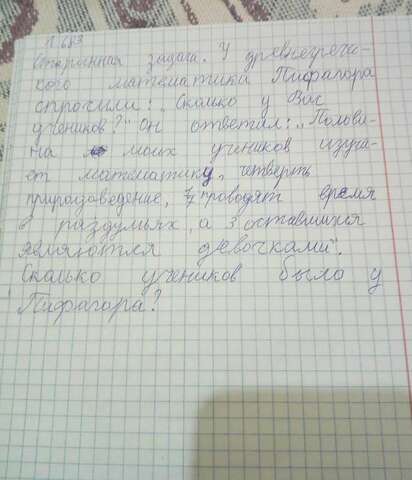 Старинная задача. У древнегрече-
ского математики Пифагора
спросили: „Сколко у Вас
учеников?" Он ответил: „Полови-
на моих учеников изуча-
ет математику, четверть
природоведение, 1/7 проводят время
в раздумьях, а 3 оставшихся
являются девочками".
Сколько учеников было у
Пифагора?